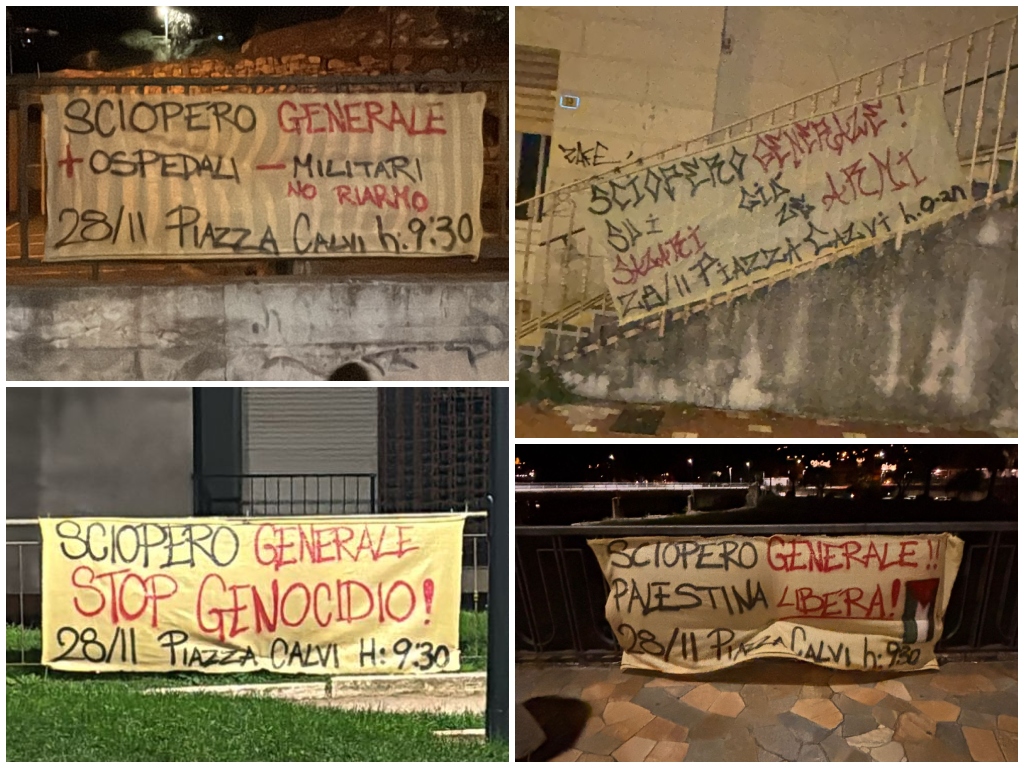 SCIOPERO GENERALE
+ OSPEDALI - MILITARI
NO RIARMO
28/11 PIAZZA CALVI h:9:30
SCIOPERO GENERALE!
SUI
GIÙ
ARMI
28/11 PIAZZA CALVI h.
SCIOPERO GENERALE
STOP GENOCIDIO!
28/11 PIAZZA CALVI H: 9:30
SCIOPERO GENERALE!!
PALESTINA LIBERA!
28/11 PIAZZA CALVI h: 9:30